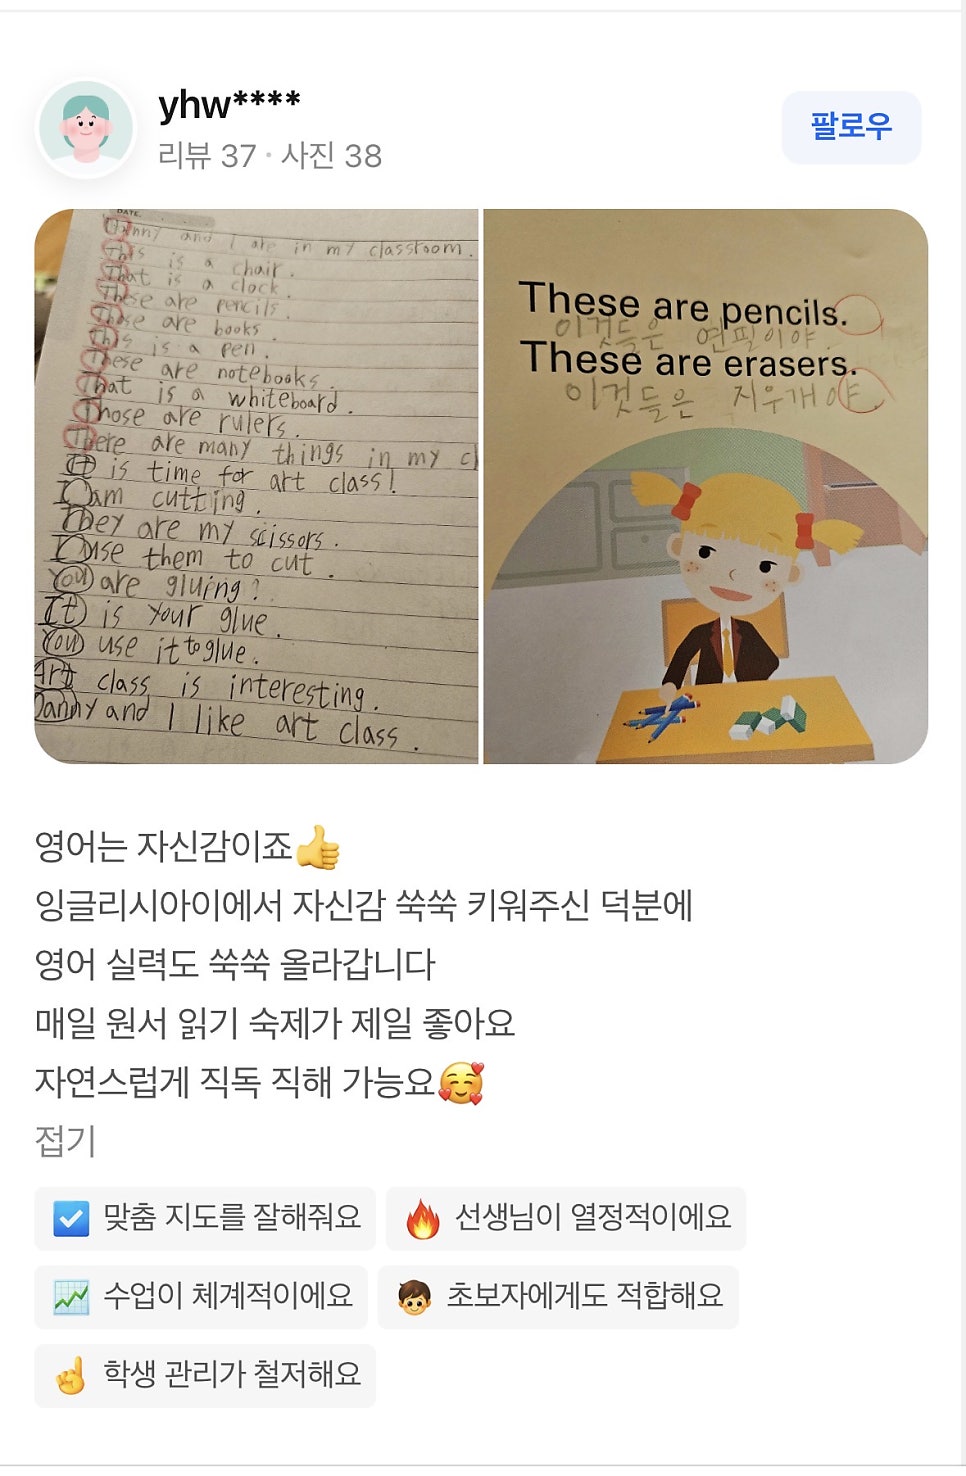 yhw****
리뷰 37 · 사진 38
팔로우
DATE.
Danny and I are in my classroom.
This is a chair.
That is a clock.
These are pencils.
Those are books.
This is a pen.
These are notebooks.
That is a whiteboard.
Those are rulers.
There are many things in my cl
It is time for art class!
I am cutting.
They are my scissors.
I use them to cut.
You are gluing?
It is your glue.
You use it to glue.
Art class is interesting.
Danny and I like art class.
These are pencils.
이것들은 연필이야.
These are erasers.
이것들은 지우개야
영어는 자신감이죠👍
잉글리시아이에서 자신감 쑥쑥 키워주신 덕분에
영어 실력도 쑥쑥 올라갑니다
매일 원서 읽기 숙제가 제일 좋아요
자연스럽게 직독 직해 가능요🥰
접기
맞춤 지도를 잘해줘요
선생님이 열정적이에요
수업이 체계적이에요
초보자에게도 적합해요
학생 관리가 철저해요